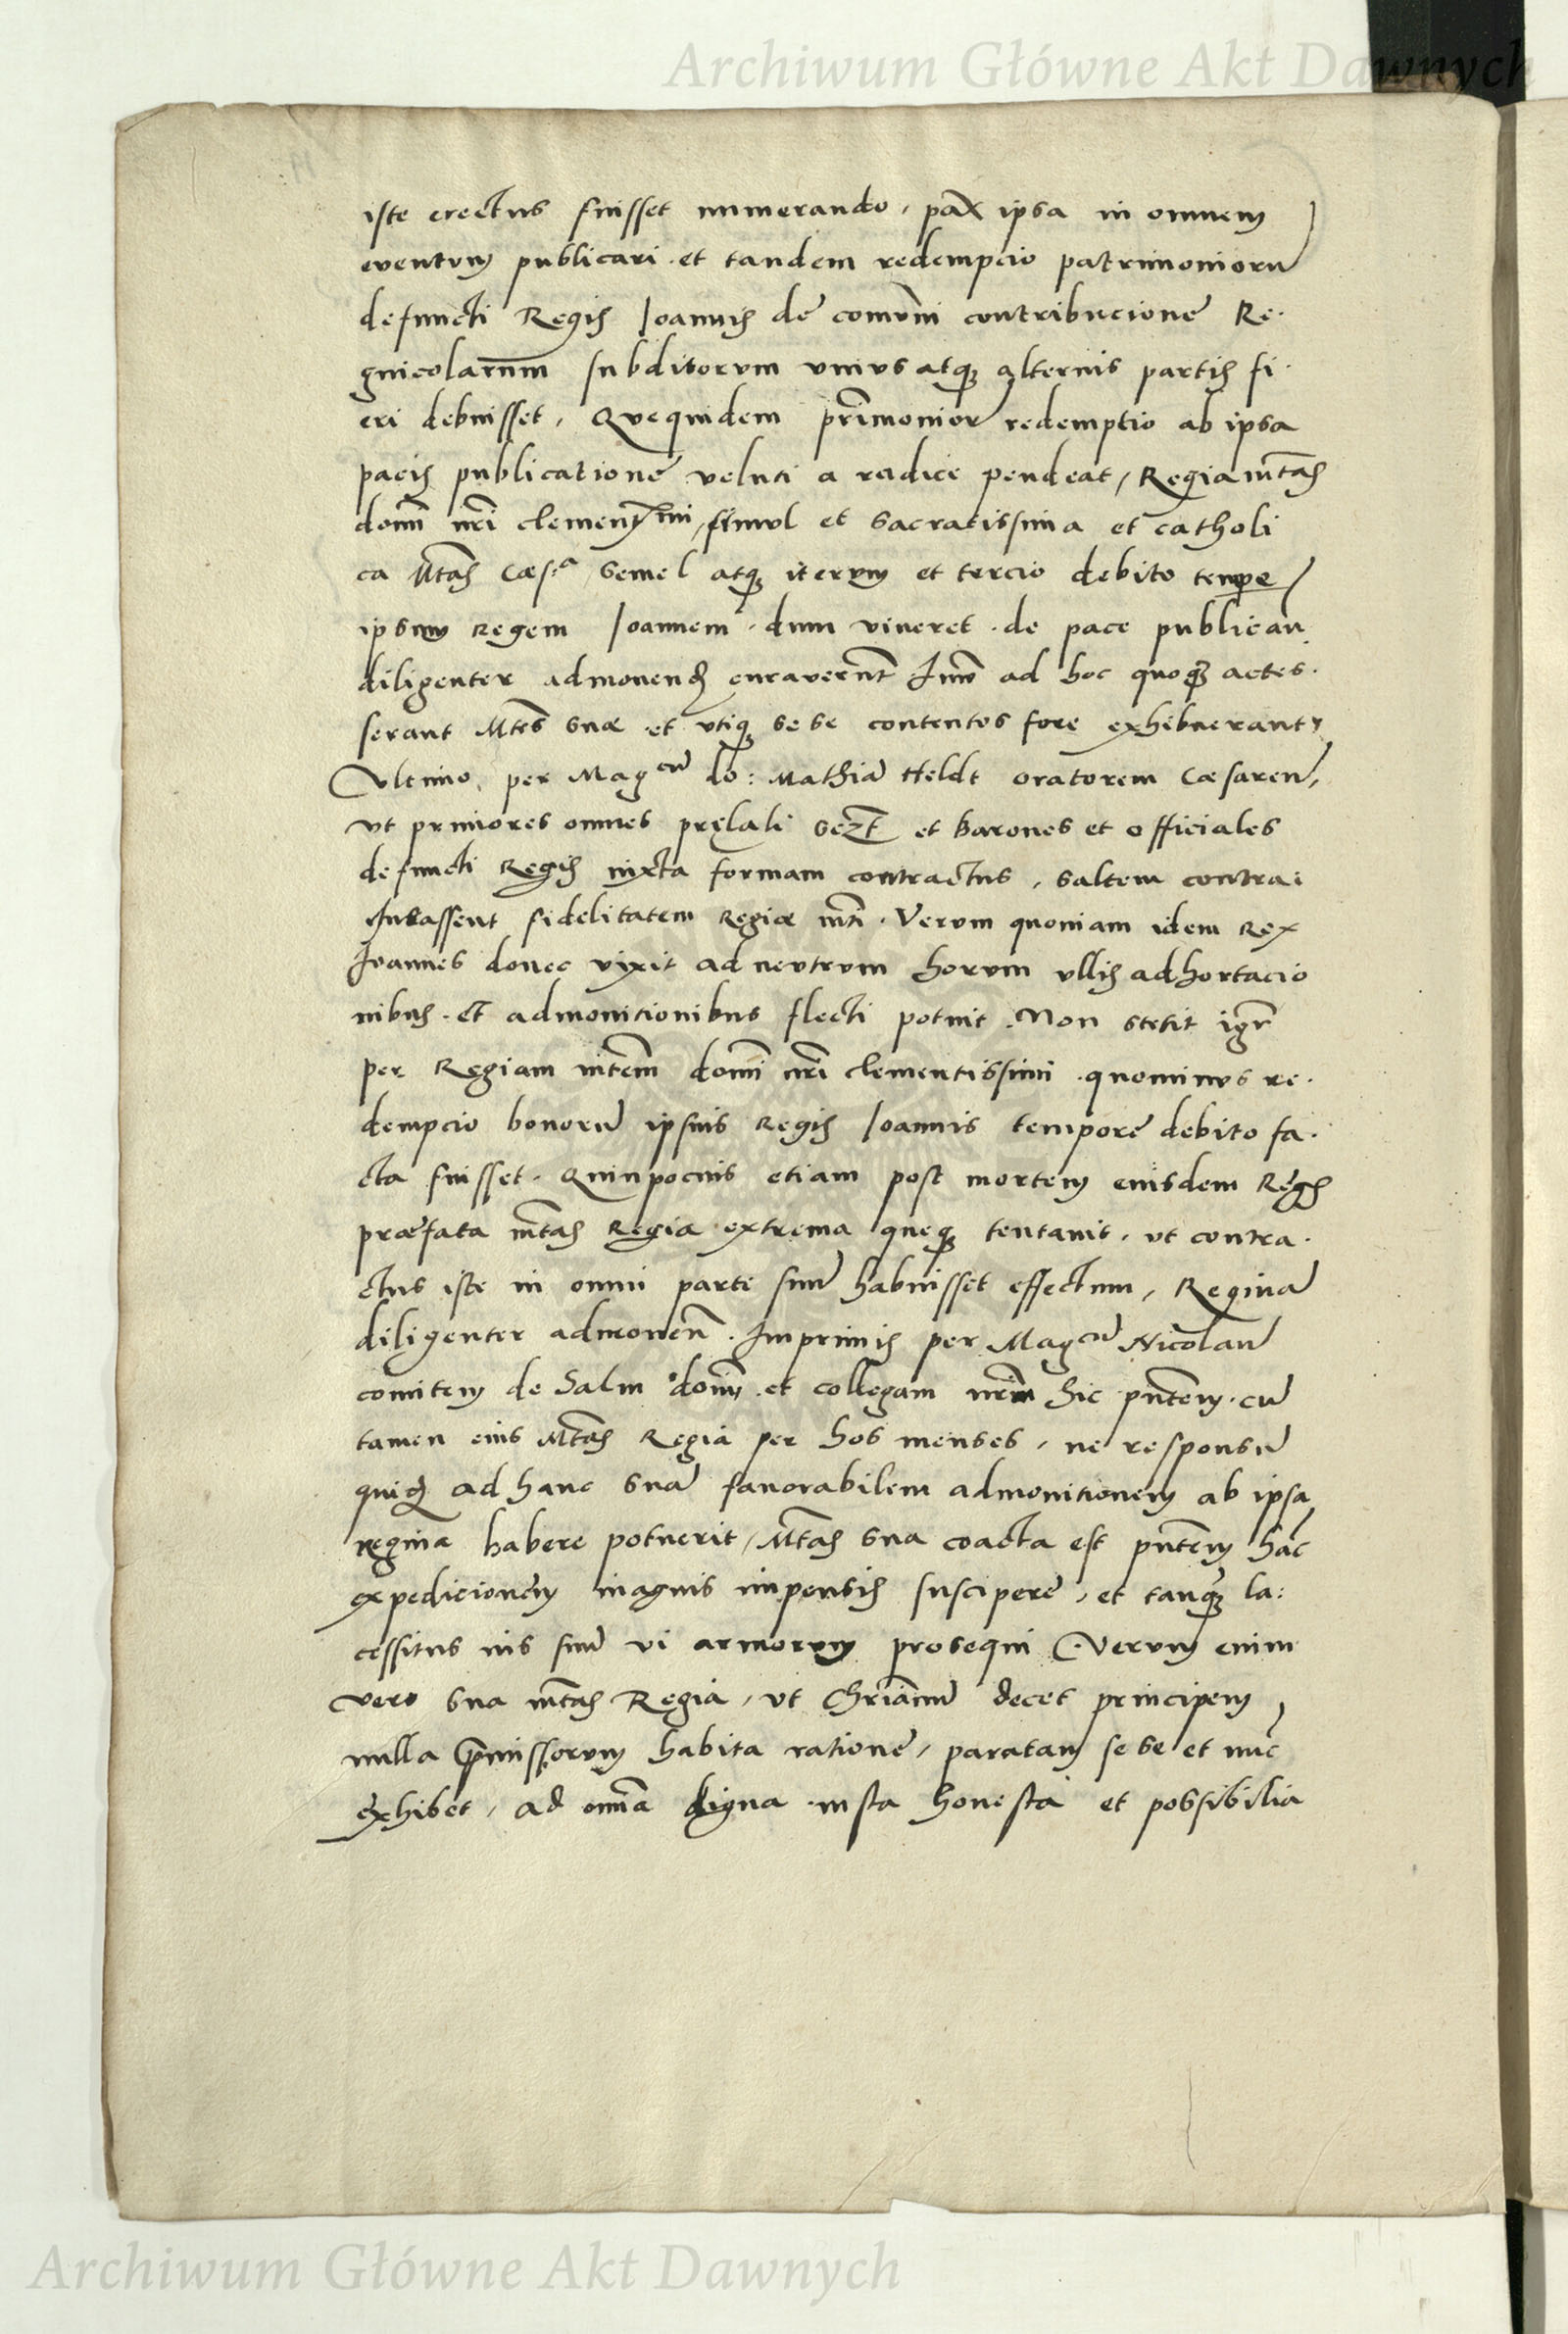 Archiwum Główne Akt Dawnych
iste erectus fuisset numerando, pax ipsa in omnem
eventum publicari et tandem redempcio patrimonioru͂
defuncti Regis Joannis de com̃uni contribucione Re-
gnicolarum subditorum unius atq; alternis partis fi-
eri debuisset, Quequidem pr̃imonior͂ redemptio ab ipsa
pacis publicatione veluti a radice pendeat, Regia mtãs
domĩ nr̃i clementissimi, simul et sacratissima et catholi
ca Mtãs Cæs.a semel atq; iterum et tercio debito tempe
ipsum regem Joannem dum viveret de pace publican
diligenter admonend curaverũt Imo ad hoc quoq; actes.
serant Mtẽs suæ et utiq; sese contentos fore exhibuerant,
Ultimo, per Magcu͂ do: Mathia͂ Heldt oratorem Cæsareu͂,
ut primores omnes prelati et barones et officiales
defuncti Regis iuxta formam contractus, saltem contra:
Iurassent fidelitatem Regiæ mti. Verum quoniam idem Rex
Joannes donec vixit ad neutrum horum ullis adhortacio
nibus et admonitionibus flecti potuit. Non stetit igr̃
per Regiam mtem̃ domĩ nr̃i clementissimi quominus re-
dempcio bonoru͂ ipsius Regis Joannis tempore debito fa-
cta fuisset. Quinpocius etiam post mortem eiusdem Regis
præfata mtãs Regia extrema queq; tentavit, ut contra-
ctus iste in omni parte suu͂ habuisset effectum, Regina͂
diligenter admonen͂. Imprimis per Magcu͂ Nicolau͂
comitem de Salm dom̃ et collegam nr̃m hic pñtem, cu͂
tamen eius Mtãs Regia per hos menses, ne responsu͂
quid ad hanc sua͂ favorabilem admonitionem ab ipsa
regina habere potuerit, Mtãs sua coacta est pñtem hãc
expedicionem magnis impensis suscipere, et tanq; la:
cessitus ius suu͂ vi armorum prosequi Verum enim
vero sua mtãs Regia, ut Chr̃ianu͂ decet principem
nulla p̃missorum habita ratione, paratam sese et nũc
exhibet, ad om̃ia digna iusta honesta et possibilia
Archiwum Główne Akt Dawnych